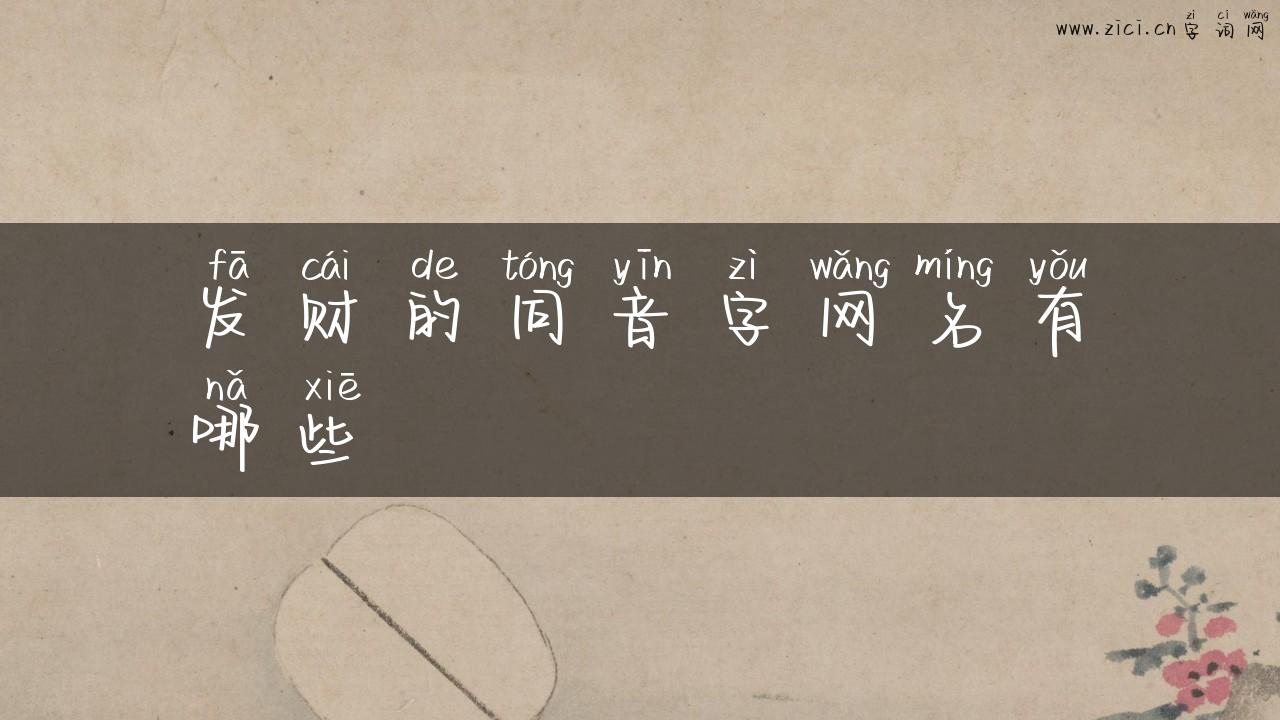 zì cí wǎng
www.zici.cn字词网
fā cái de tóng yīn zì wǎng míng yǒu
发财的同音字网名有
nǎ xiē
哪些